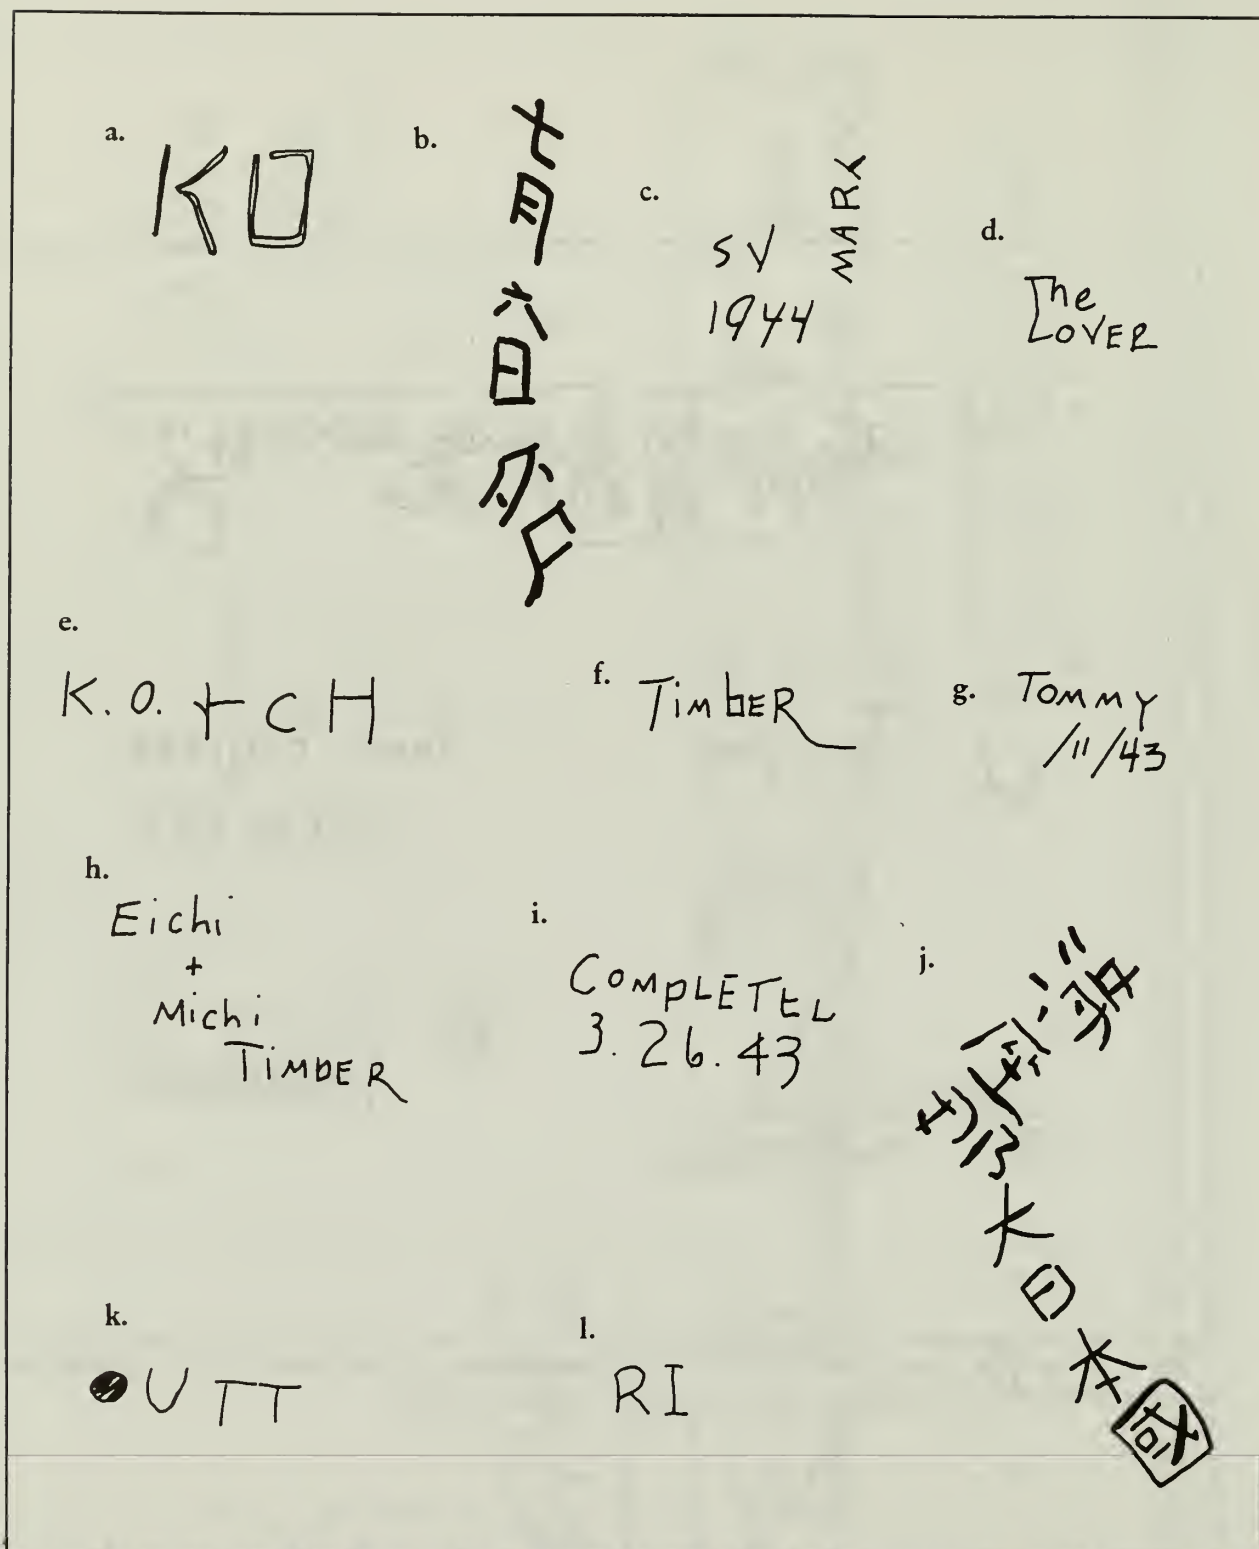 a.
KO
b.
七月六日
c.
SV
1944
MARY
d.
The
LOVER
e.
K.O. + CH
f.
TimbER
g.
TOMMY
/11/43
h.
Eichi
+
Michi
TIMBER
i.
COMPLETEL
3.26.43
j.
大日本國
k.
UTT
l.
RI